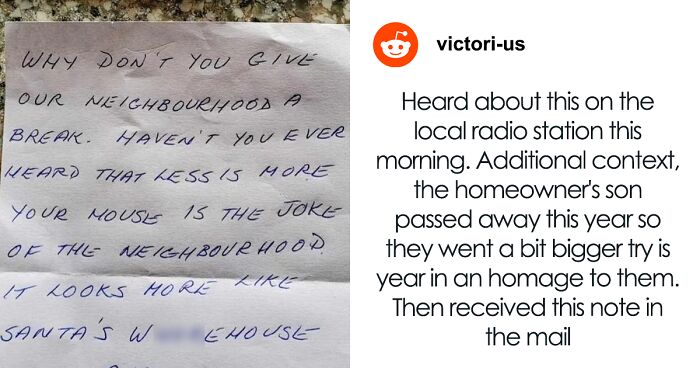 WHY DON'T YOU GIVE
OUR NEIGHBOURHOOD A
BREAK. HAVEN'T YOU EVER
HEARD THAT LESS IS MORE
YOUR HOUSE IS THE JOKE
OF THE NEIGHBOURHOOD.
IT LOOKS MORE LIKE
SANTA'S W EHOUSE
victori-us
Heard about this on the
local radio station this
morning. Additional context,
the homeowner's son
passed away this year so
they went a bit bigger try is
year in an homage to them.
Then received this note in
the mail